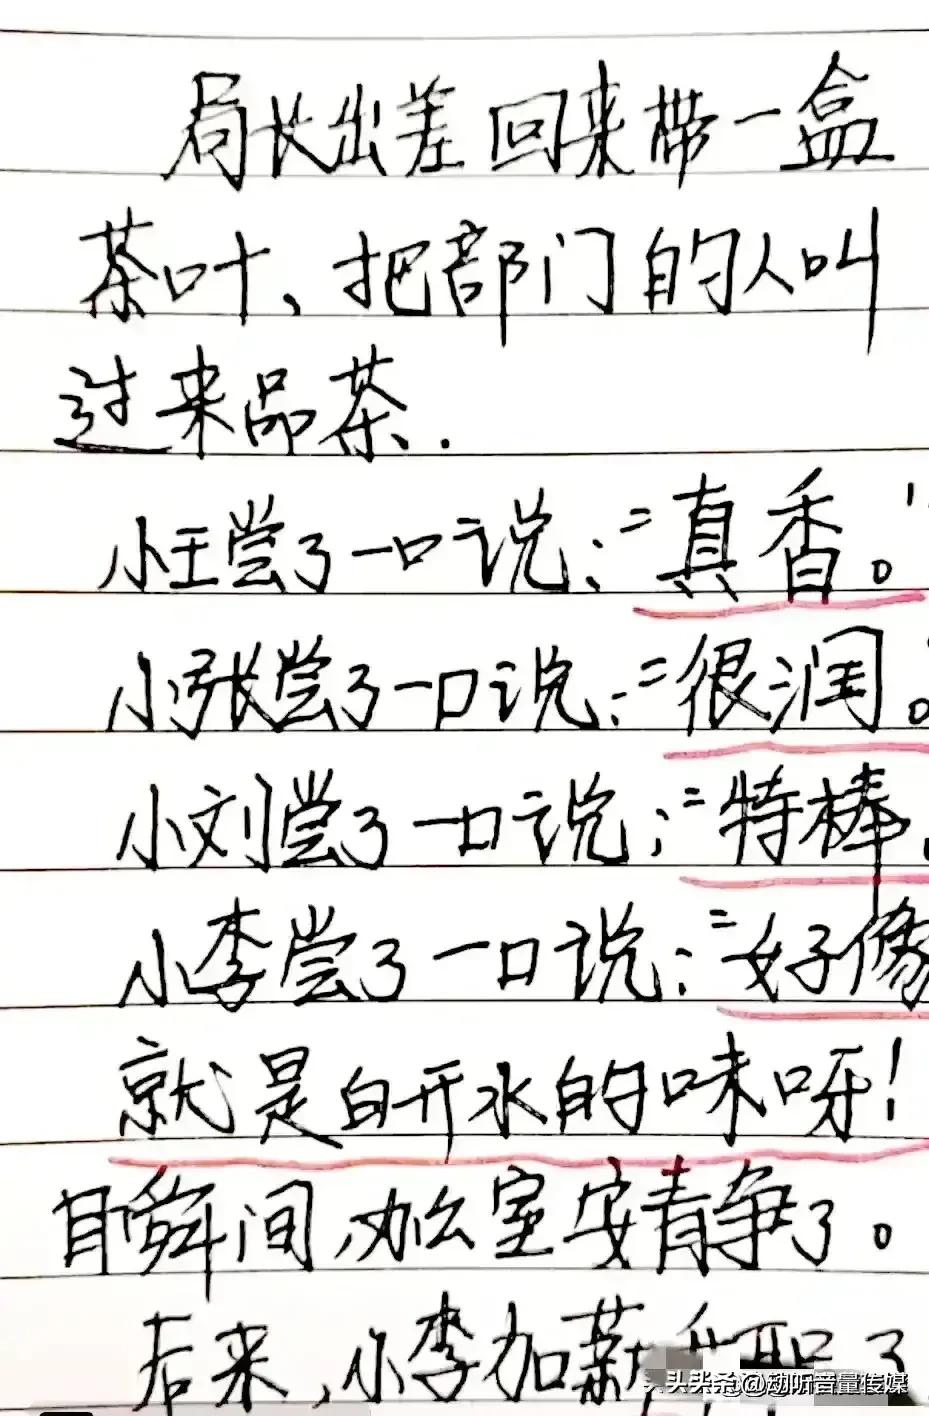 局长出差回来带一盒
茶叶、把部门的人叫
过来品茶.
小王尝了一口说:"真香。"
小张尝了一口说:"很润。
小刘尝了一口说:"特棒.
小李尝了一口说:"好像
就是白开水的味呀!
瞬间,办公室安静了。
后来,小李加薪升职了
头条@动听音量传媒